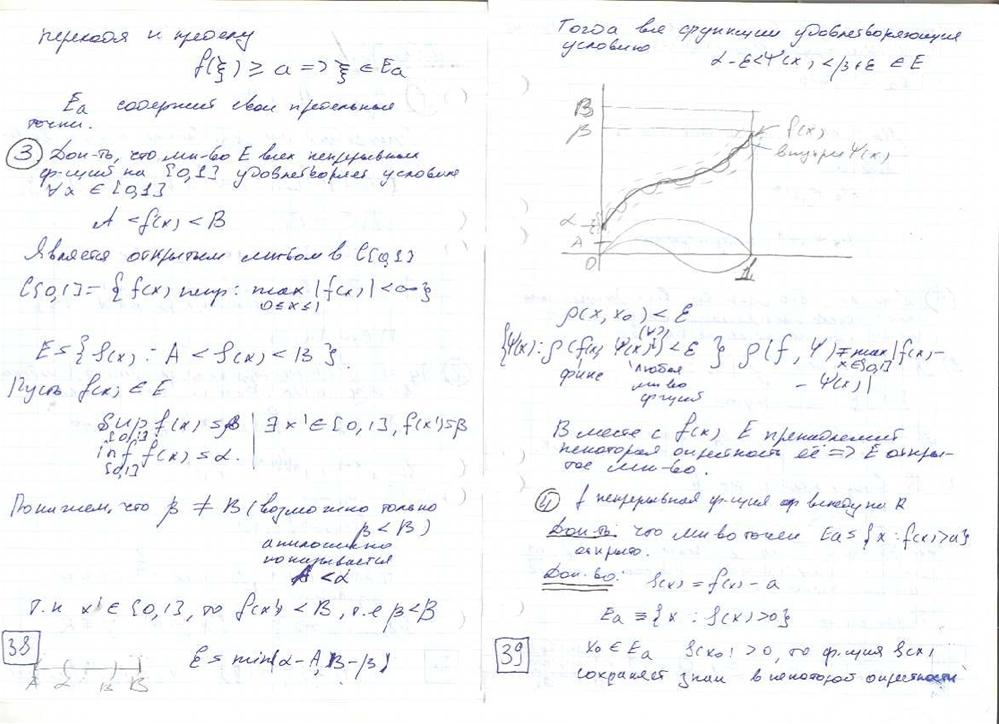 переходя к пределу
f(ξ) ≥ a => ξ ∈ Ea
Ea содержит свои предельные
точки.
③ Док-ть, что мн-во E всех непрерывных
ф-ций на [0,1] удовлетворяет условию
∀x ∈ [0,1]
A < f(x) < B
Является открытым мн-вом в C[0,1]
C[0,1] = { f(x) непр: max |f(x)| < ∞ }
0≤x≤1
E ≡ { f(x) : A < f(x) < B }
Пусть f(x) ∈ E
sup f(x) ≡ β | ∃ x' ∈ [0,1], f(x') ≡ β
[0,1]
inf f(x) ≡ α.
[0,1]
Покажем, что β ≠ B (возможно только
β < B)
аналогично
показывается
A < α
т.к x' ∈ [0,1], то f(x') < B, т.е β < B
ε ≡ min{α - A, B - β}
38
A α β B
Тогда все функции удовлетворяющие
условию
α - ε < Ψ(x) < β + ε ∈ E
B
β
f(x)
внутри Ψ(x)
α
A
0
1
ρ(x, x₀) < ε
{Ψ(x) : ρ(f(x), Ψ(x)) < ε } ρ(f, Ψ) = max |f(x) -
x∈[0,1]
фикс любая
мн-во
функций
- Ψ(x)|
Вместе с f(x) E принадлежит
некоторая окрестность её => E откры-
тое мн-во.
④ f непрерывная ф-ция всюду на R
Док-ть: что мн-во точек Ea ≡ {x : f(x) > a}
открыто.
Док-во: g(x) = f(x) - a
Ea ≡ {x : g(x) > 0}
x₀ ∈ Ea g(x₀) > 0, то ф-ция g(x)
сохраняет знак в некоторой окрестности
39